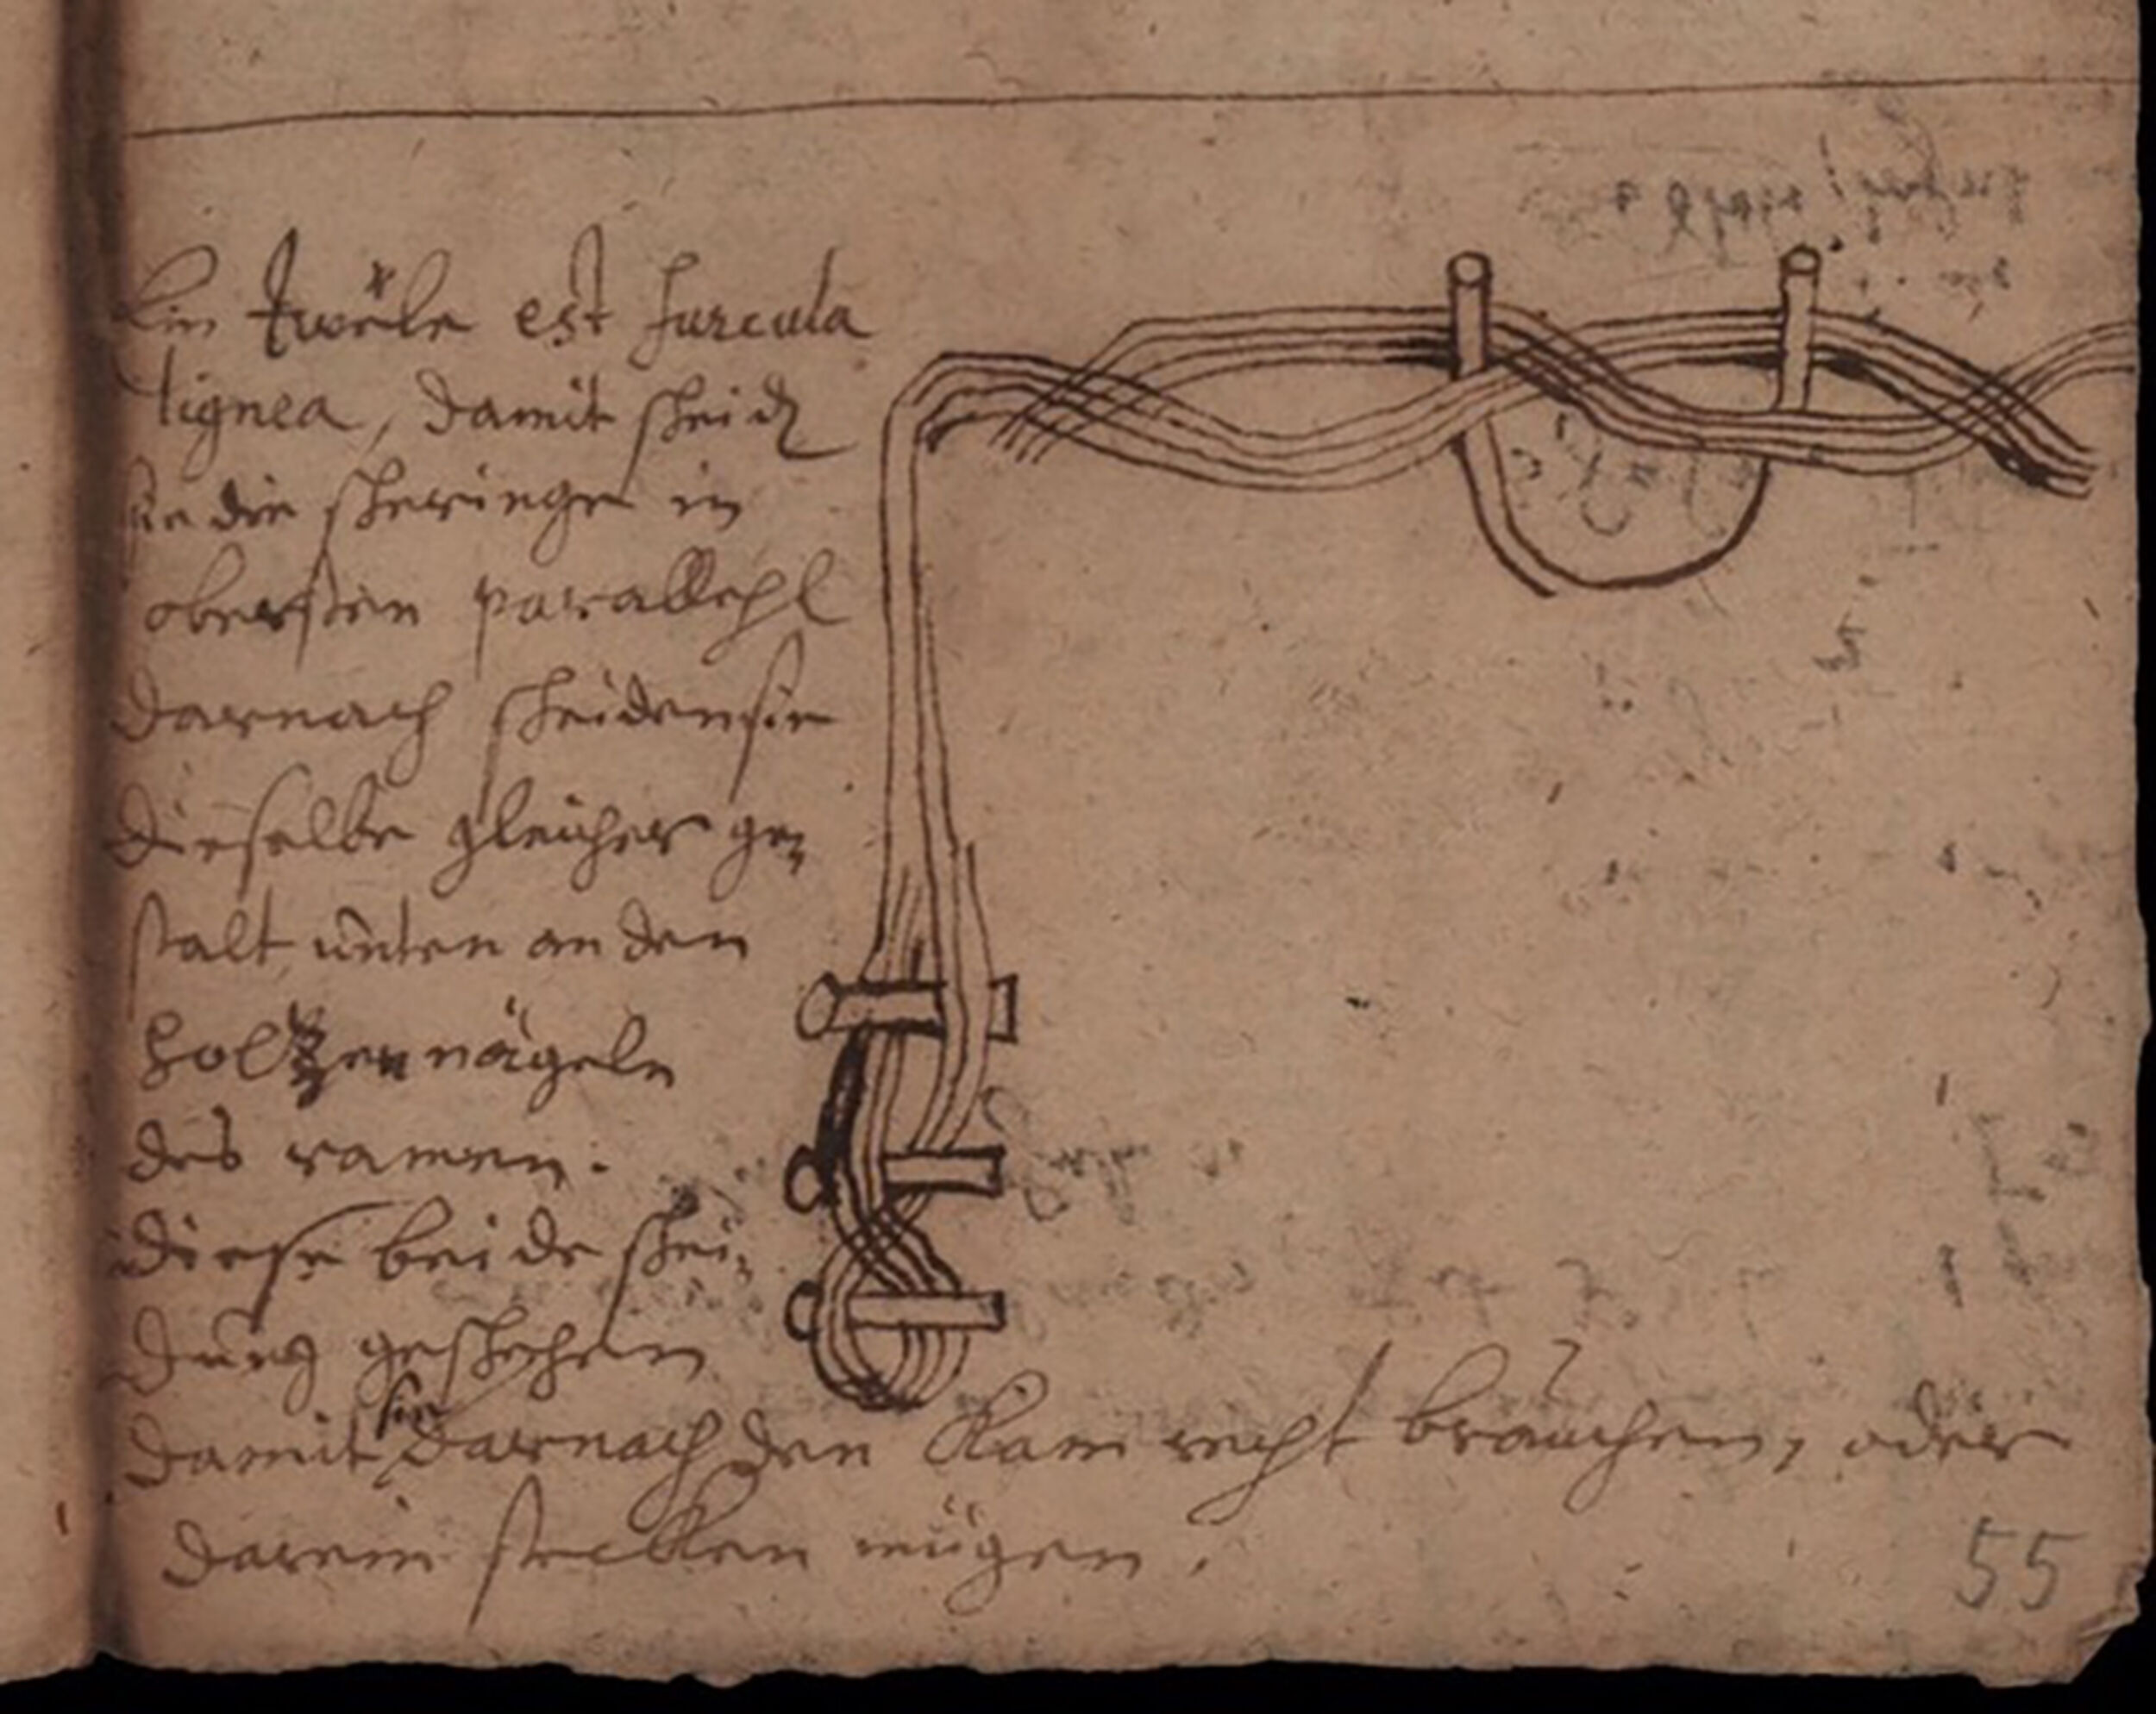 Ein twële est furcula
lignea, damit scheid
sie die scheringe im
obersten parallehl
darnach scheiden sie
dieselbe gleicher ge=
stalt unten an den
holtzern nägeln
des ramen.
diese beide schei=
dung geschehen
damit sie darnach den Kam recht brauchen, oder
darein stecken mügen.
55